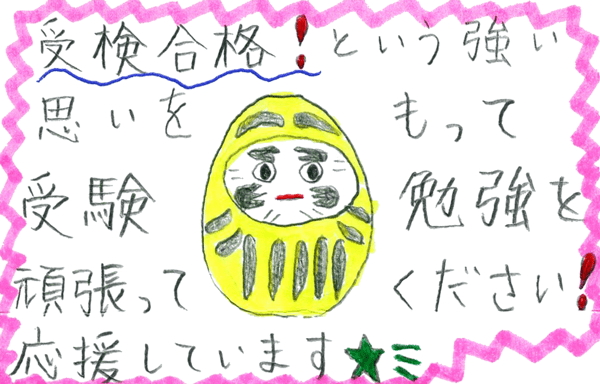 受検合格!という強い
思いを もって
受験 勉強を
頑張って ください!
応援しています★ミ